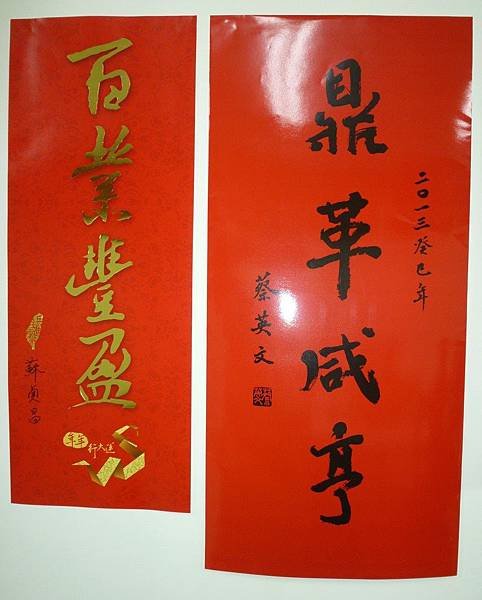 百業豐盈
蘇貞昌
年年
行大運
二〇一三癸巳年
鼎革咸亨
蔡英文